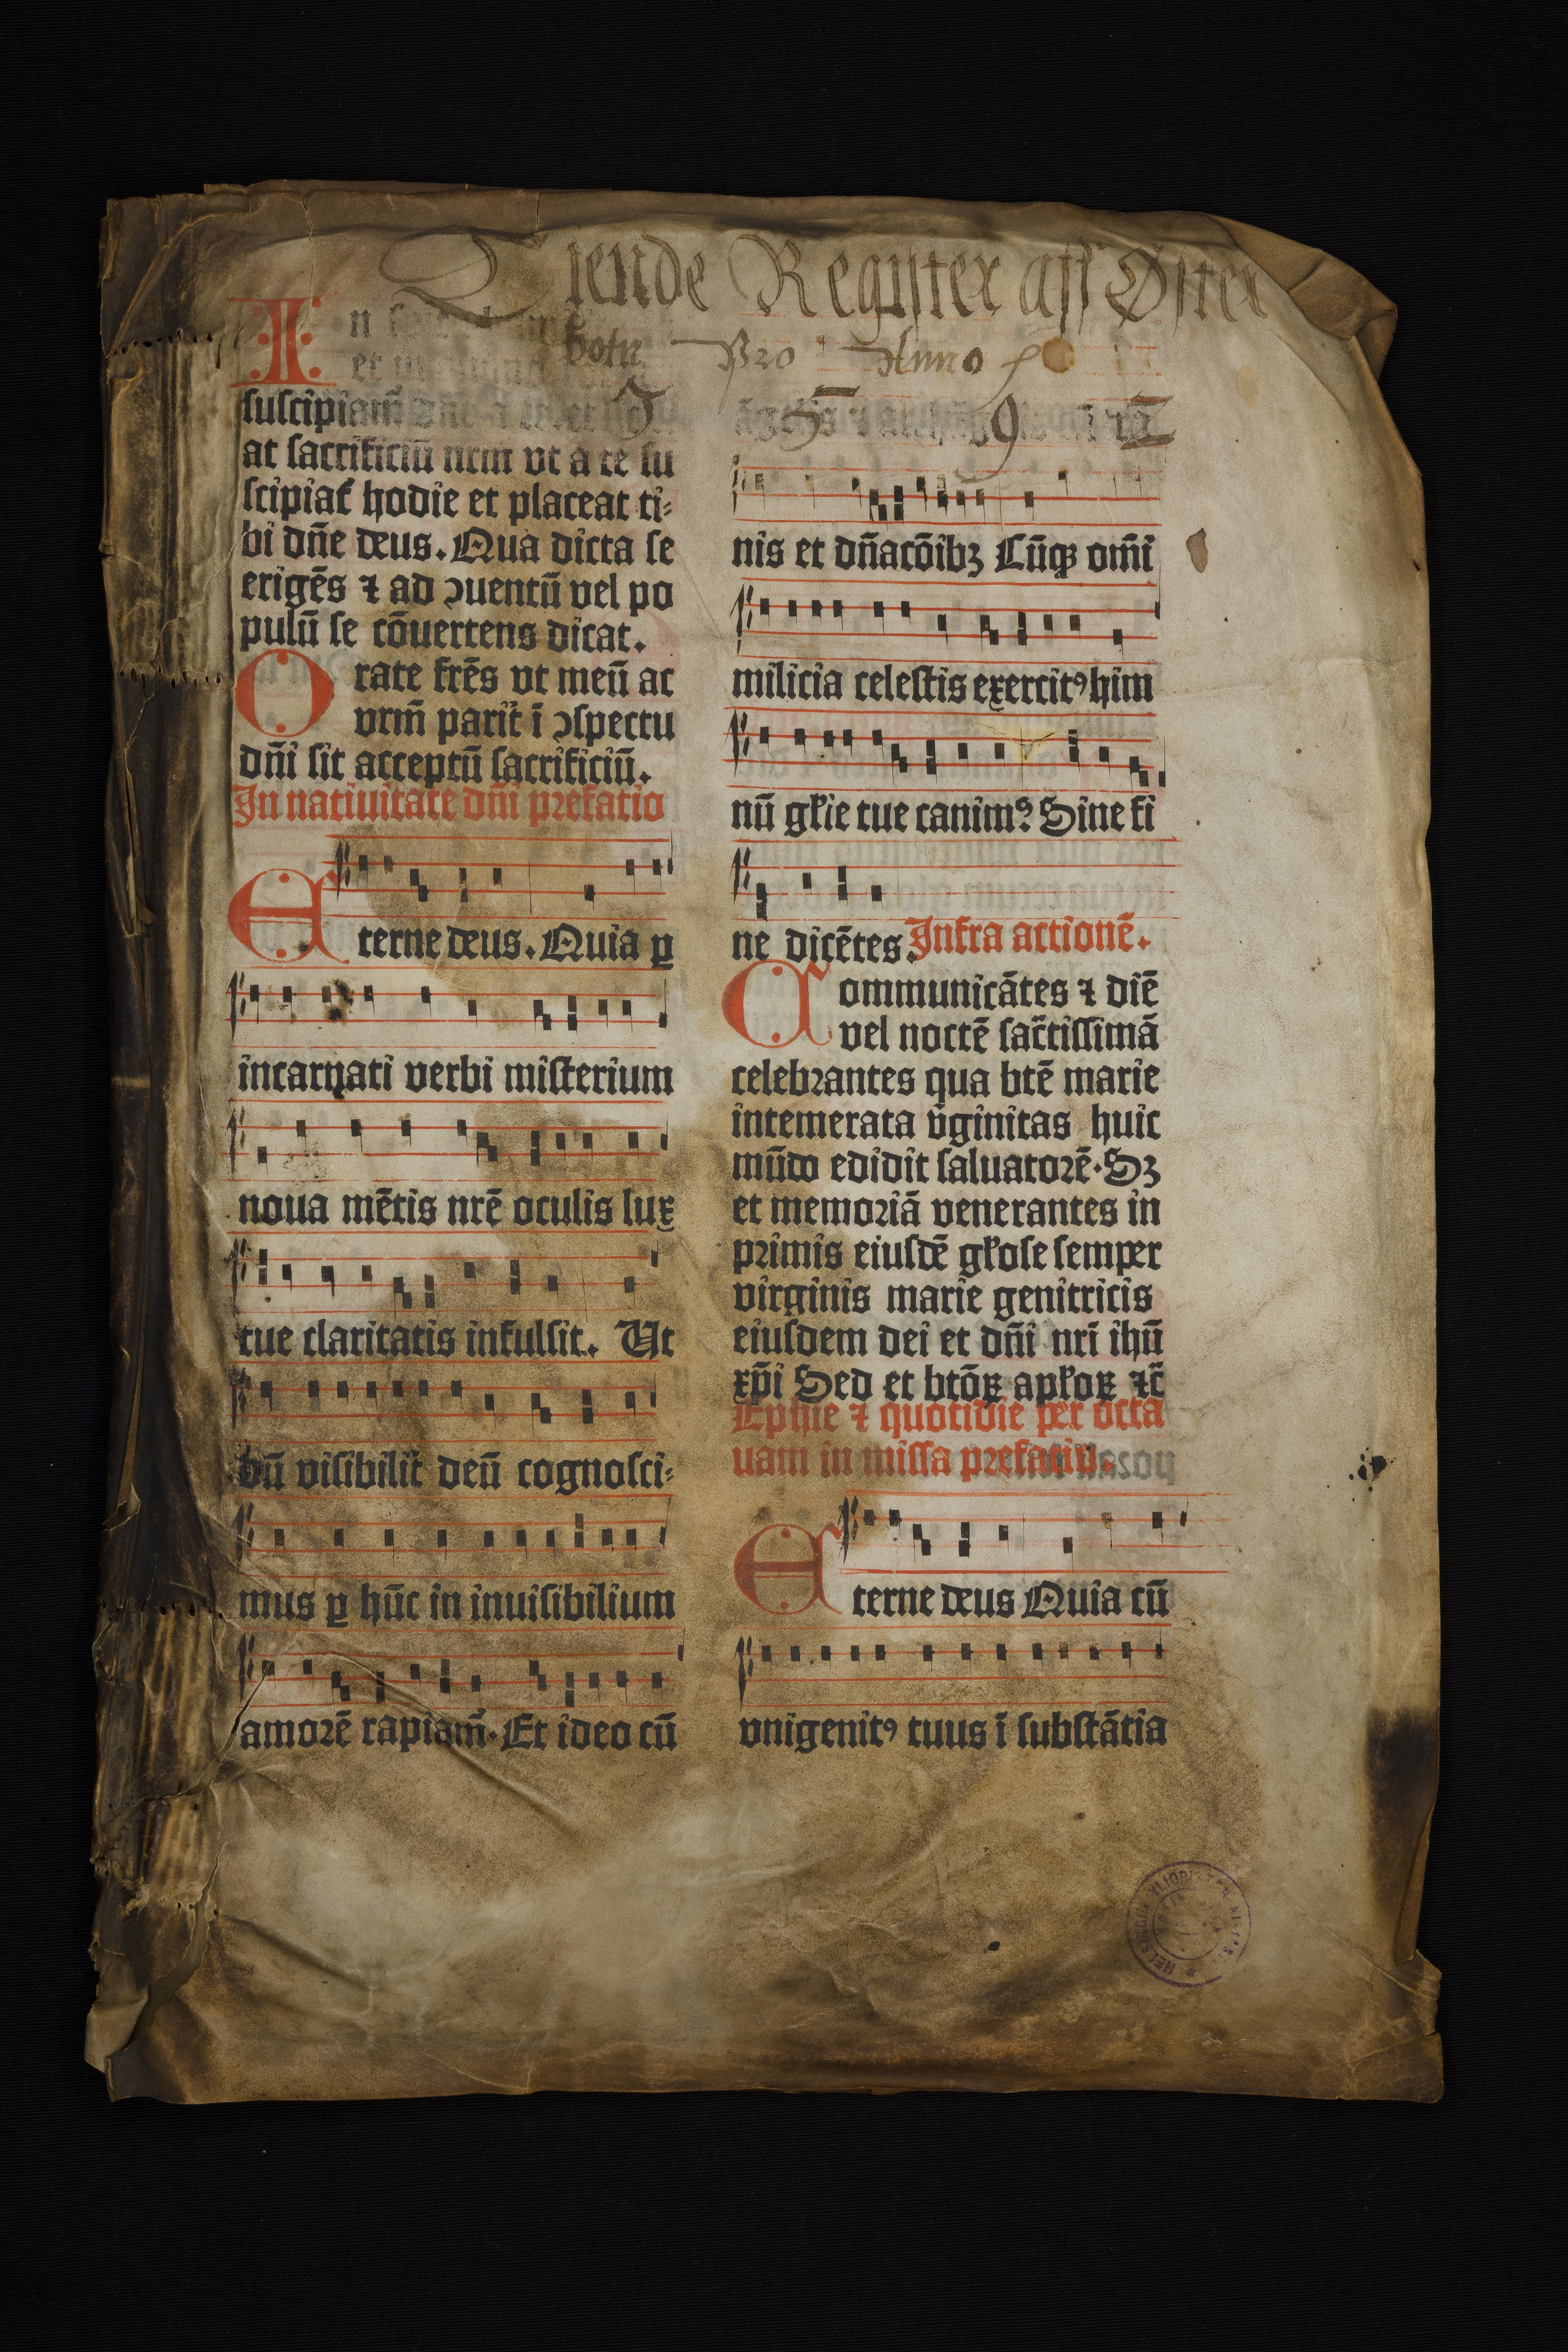 Tiende Register aff Øster
botn Pro Anno
1 5 9 2
In
et in
suscipiam̄
at sacrificiū nrm̄ vt a te su
scipiat᷑ hodie et placeat ti⸗
bi dn̄e deus. Qua dicta se
erigēs ⁊ ad ↄuentū vel po
pulū se cōuertens dicat.
Orate frēs vt meū ac
vrm̄ parit᷑ ī ↄspectu
dn̄i sit acceptū sacrificiū.
In natiuitate dn̄i prefatio
Eterne deus. Quia ꝑ
incarnati verbi misterium
noua mētis nrē oculis lux
tue claritatis infulsit. Ut
dū visibilit᷑ deū cognosci⸗
mus ꝑ hūc in inuisibilium
amorē rapiam̄. Et ideo cū
āgel̄is
nis et dn̄acōibꝫ Cūqꝫ omī
milicia celestis exercitꝰ him
nū gl̄ie tue canimꝰ? Sine fi
ne dicētes. Infra actionē.
Communicātes ⁊ diē
vel noctē sac̄tissimā
celebrantes qua btē marie
intemerata v̄ginitas huic
mūdo edidit saluatorē. Sꝫ
et memoriā venerantes in
primis eiusdē gl̄ose semper
virginis marie genitricis
eiusdem dei et dn̄i nrī ihū
xp̄i Sed et btōꝝ apl̄oꝝ ⁊c̄
Ephīe ⁊ quotidie per octa
uam in missa prefatio.
Eterne deus Quia cū
vnigenitꝰ tuus ī substātia